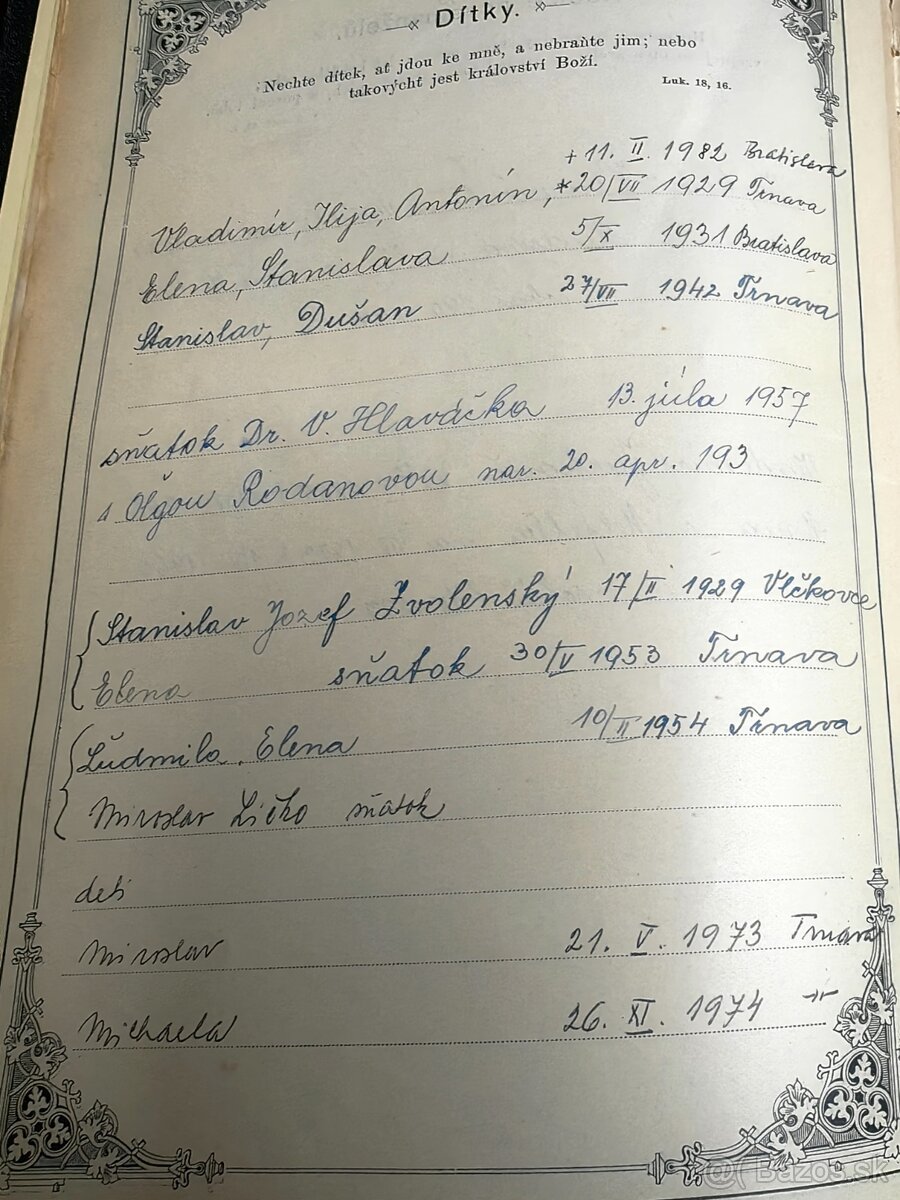 Dítky.
Nechte dítek, ať jdou ke mně, a nebraňte jim; nebo
takovýchť jest království Boží.
Luk. 18, 16.
+ 11. II. 1982 Bratislava
Vladimír, Ilija, Antonín, *20/VII 1929 Trnava
Elena, Stanislava 5/X 1931 Bratislava
Stanislav, Dušan 27/VII 1942 Trnava
sňatok Dr. V. Hlaváčka 13. júla 1957
s Oľgou Rodanovou nar. 20. apr. 193
Stanislav Jozef Zvolenský 17/II 1929 Vlčkovce
Elena sňatok 30/V 1953 Trnava
Ľudmila, Elena 10/II 1954 Trnava
Miroslav Ličko sňatok
deti
Miroslav 21. V. 1973 Trnava
Michaela 26. XI. 1974 -"-
Bazos.sk